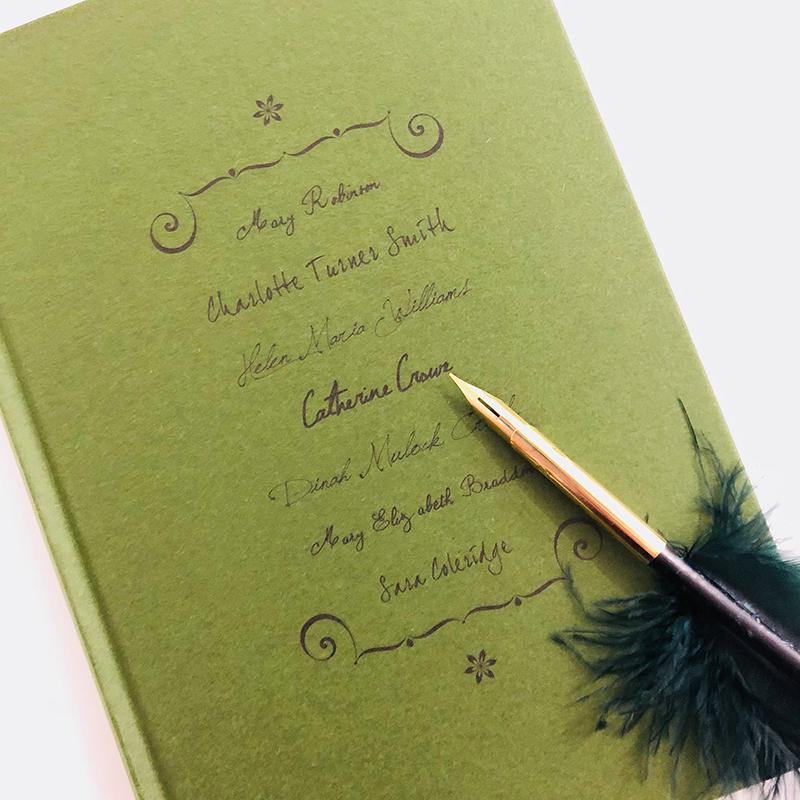 Mary Robinson
Charlotte Turner Smith
Helen Maria Williams
Catherine Crowe
Dinah Mulock
Mary Elizabeth
Sara Coleridge